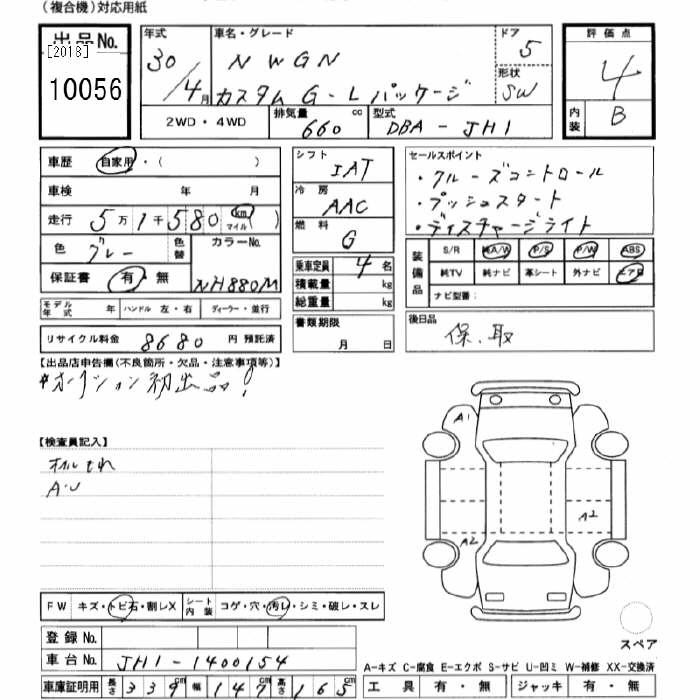 (複合機)対応用紙
出品No.
[2018]
10056
年式
30/4月
車名・グレード
N WGN
カスタム G-L パッケージ
ドア
5
形状
SW
評価点
4
内装
B
2WD・4WD
排気量
660 cc
型式
DBA-JH1
車歴 自家用・( )
車検 年 月
走行 5万1千580 km マイル ( )
色 グレー
色替
カラーNo.
NH880M
保証書 有・無
モデル年式 年 ハンドル 左・右 ディーラー・並行
リサイクル料金 8680 円 預託済
シフト
IAT
冷房
AAC
燃料
G
乗車定員 4 名
積載量 kg
総重量 kg
書類期限
月 日
セールスポイント
・クルーズコントロール
・プッシュスタート
・ディスチャージライト
装備品
S/R 純A/W P/S P/W ABS
純TV 純ナビ 革シート 外ナビ エアB
ナビ型番:
後日品
保.取
【出品店申告欄(不良箇所・欠品・注意事項等)】
オークション初出品!
【検査員記入】
オイルもれ
A・U
A1
A2
A2
スペア
FW キズ・トビ石・割レX シート内装 コゲ・穴・汚レ・シミ・破レ・スレ
登録No.
車台No. JH1-1400154
車庫証明用 長さ 339cm 幅 147cm 高さ 165cm
A-キズ C-腐食 E-エクボ S-サビ U-凹ミ W-補修 XX-交換済
工具 有・無 ジャッキ 有・無